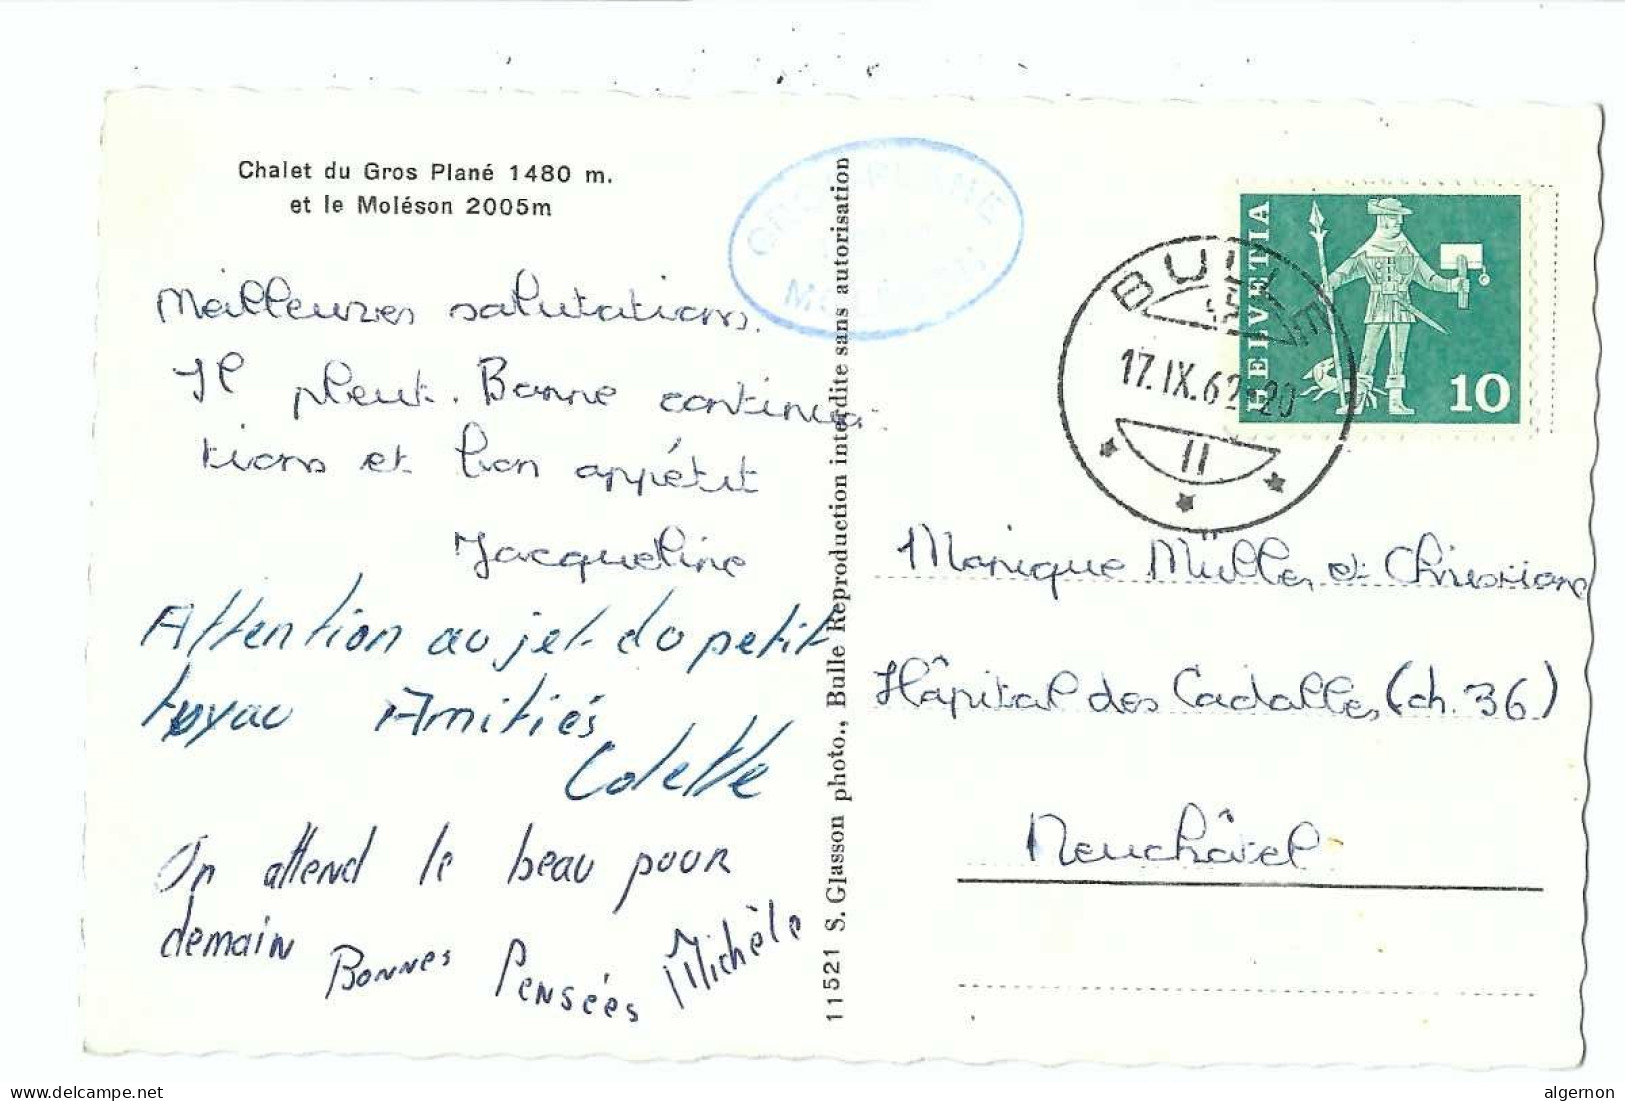 Chalet du Gros Plané 1480 m.
et le Moléson 2005m
Meilleures salutations.
Il pleut. Bonne continua-
tions et bon appétit
Jacqueline
Attention au jet do petit
tuyau Amitiés
Colette
On attend le beau pour
demain Bonnes Pensées Michèle
11521 S. Glasson photo., Bulle Reproduction interdite sans autorisation
GROS-PLANE
MOLESON
BULLE
17.IX.62-20
11
HELVETIA
10
Monique Muller et Christiane
Hôpital des Cadolles (ch. 36)
Neuchâtel
www.delcampe.net
algernon